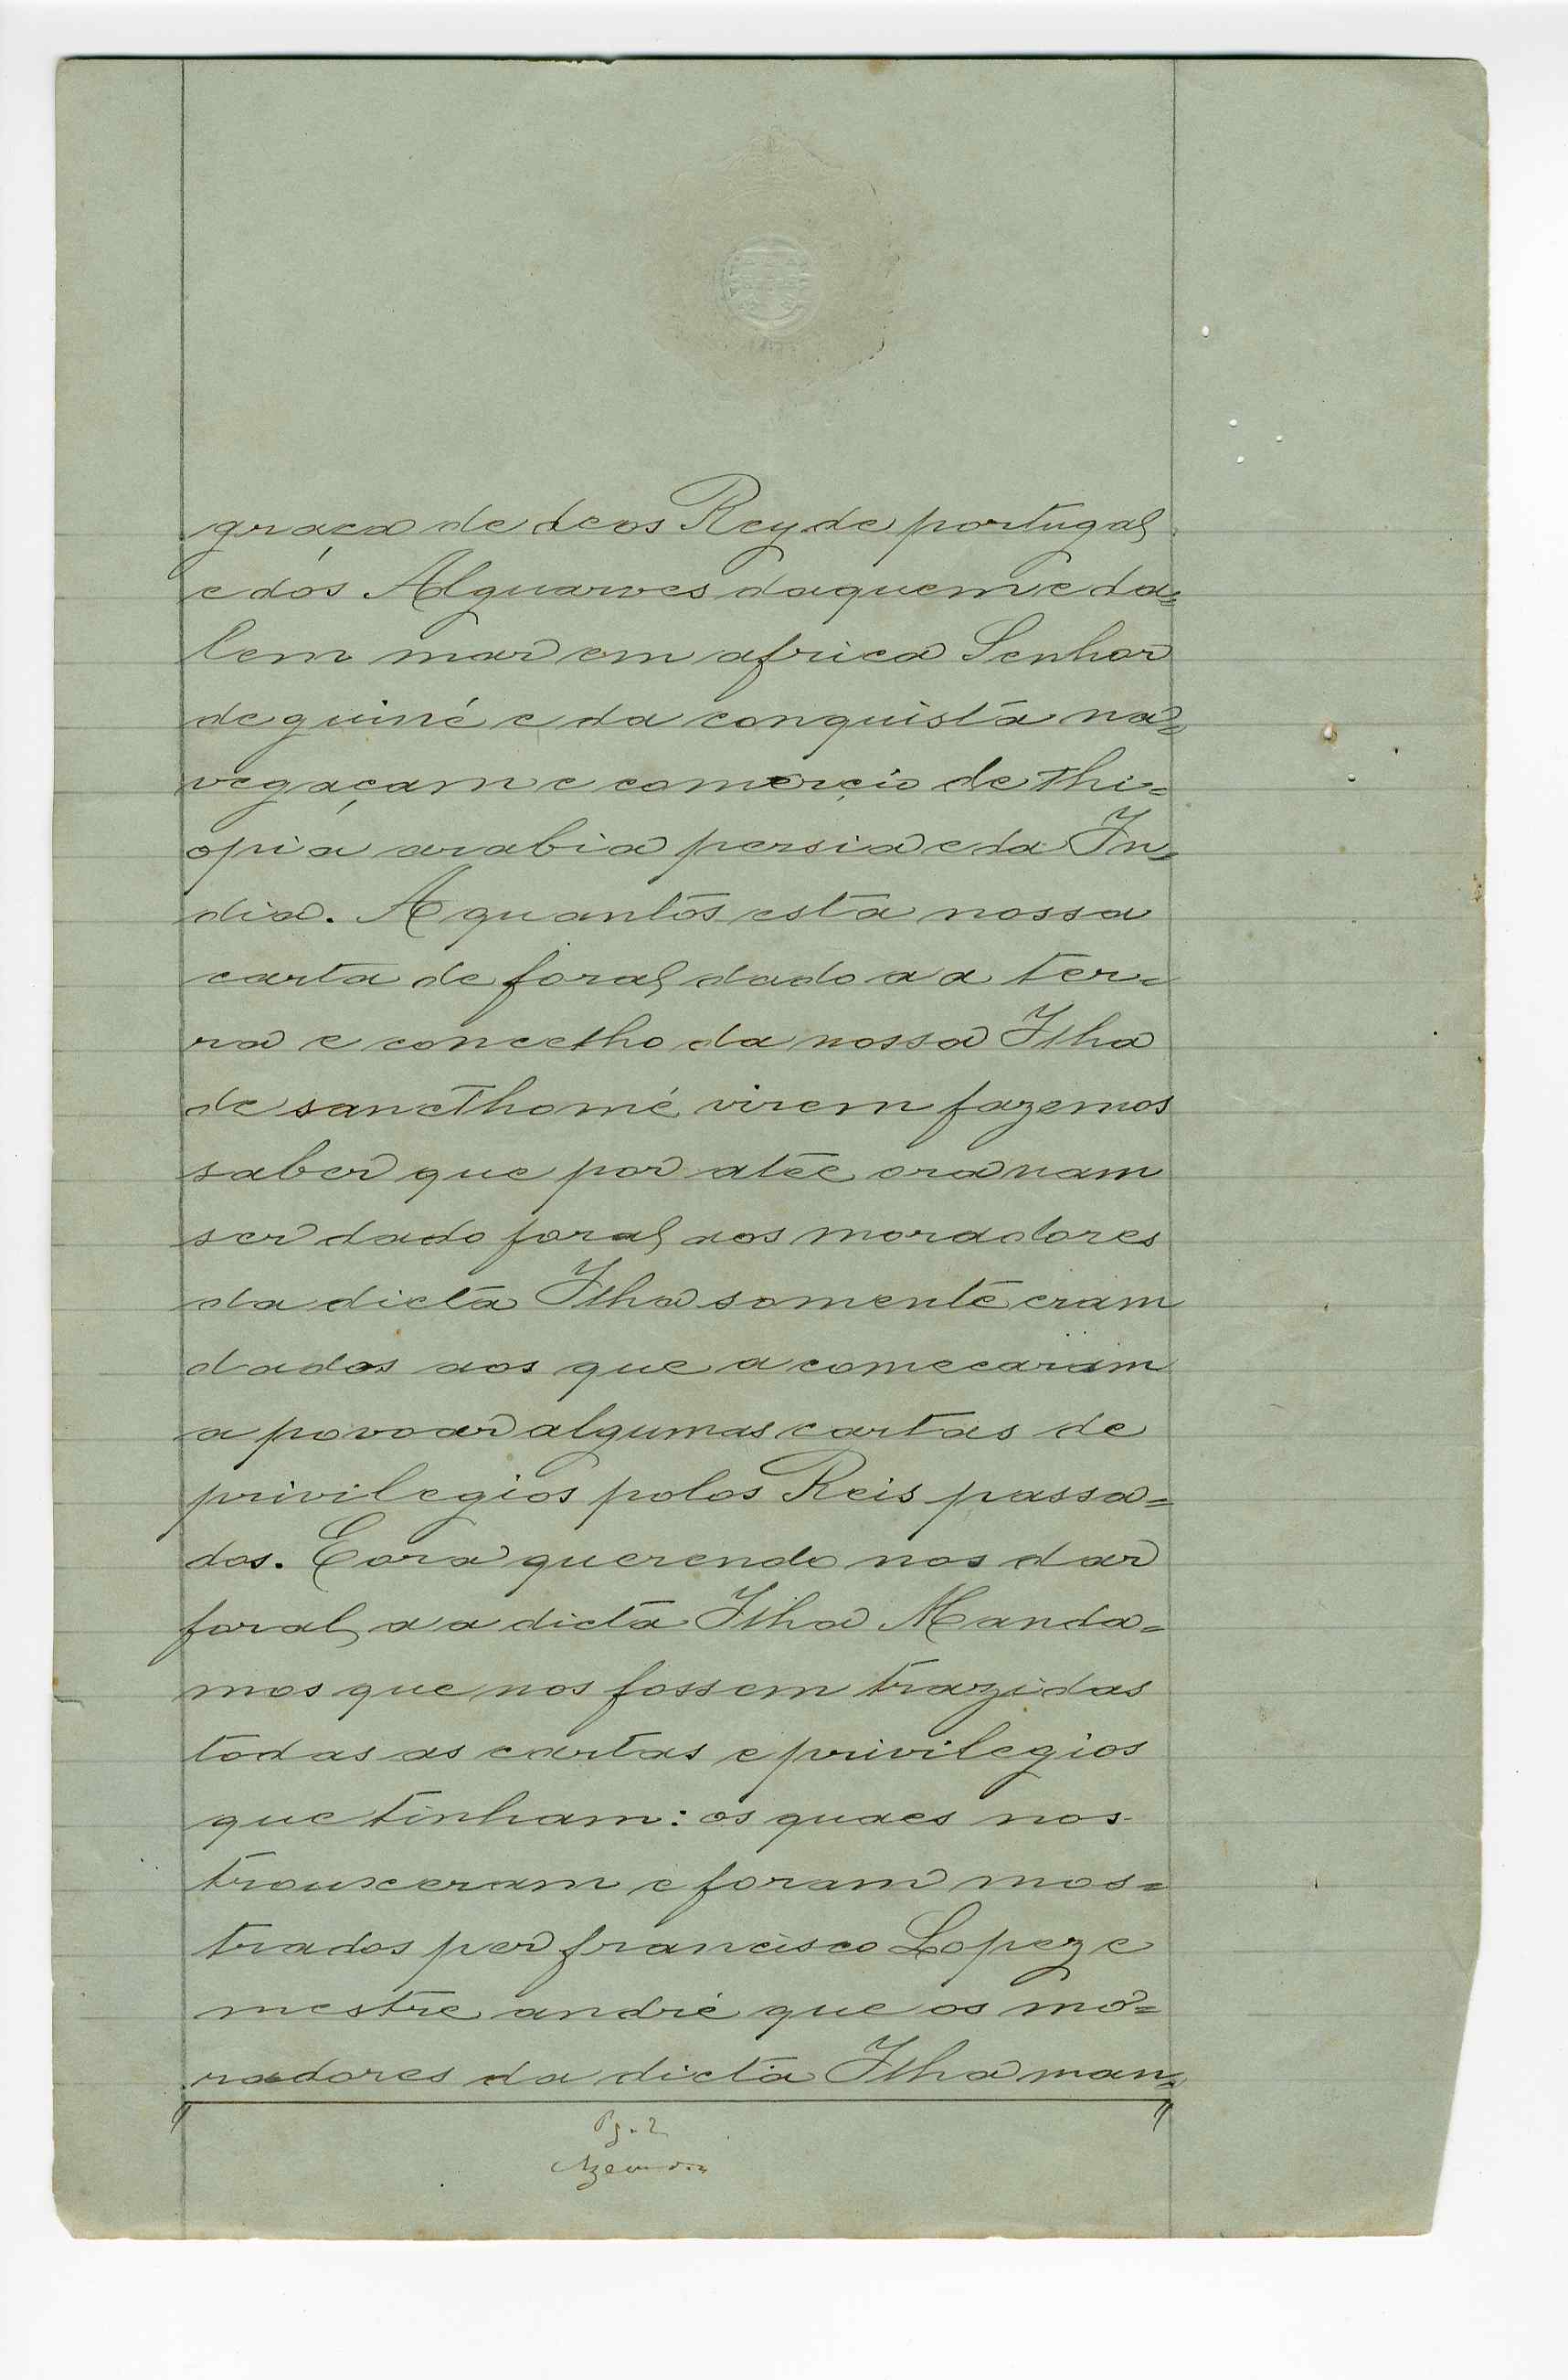 graça de deos Rey de portugal
e dos Alguarves daquem e da=
lem mar em africa Senhor
de guiné e da conquista na=
vegaçam e comerçio de thi=
opia arabia persia e da In=
dia. A quantos esta nossa
carta de foral dado a a ter=
ra e concelho da nossa Ilha
de sancthomé virem fazemos
saber que por atée ora nam
ser dado foral aos moradores
da dicta Ilha somente eram
dados aos que a comecaram
a povoar algumas cartas de
privilegios polos Reis passa=
dos. E ora querendo nos dar
foral a a dicta Ilha Manda=
mos que nos fossem trazidas
todas as cartas e privilegios
que tinham: os quaes nos
trouxeram e foram mos=
trados per francisco Lopez e
mestre andré que os mo=
radores da dicta Ilha man=
Pg. 2